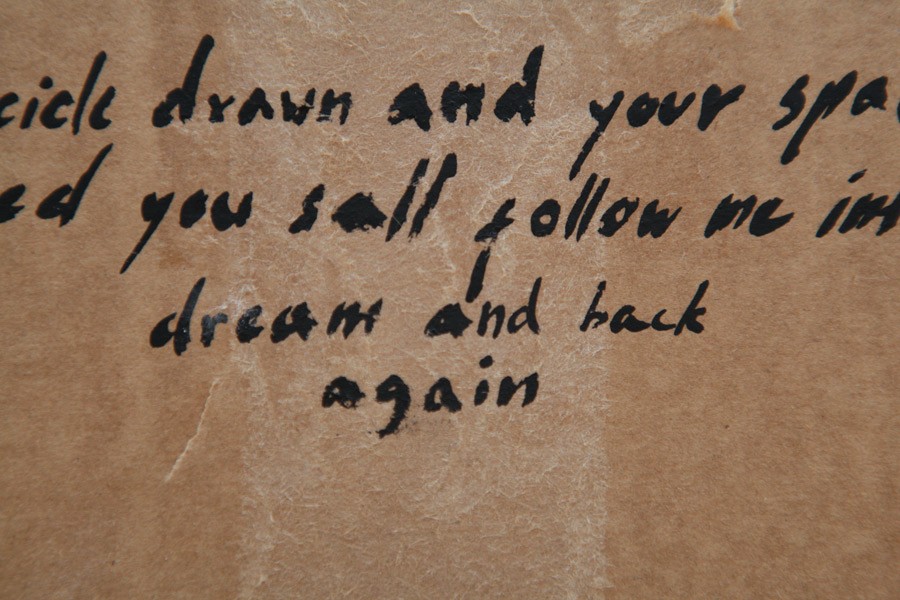 drawn and your
you sall follow me
dream and back
again